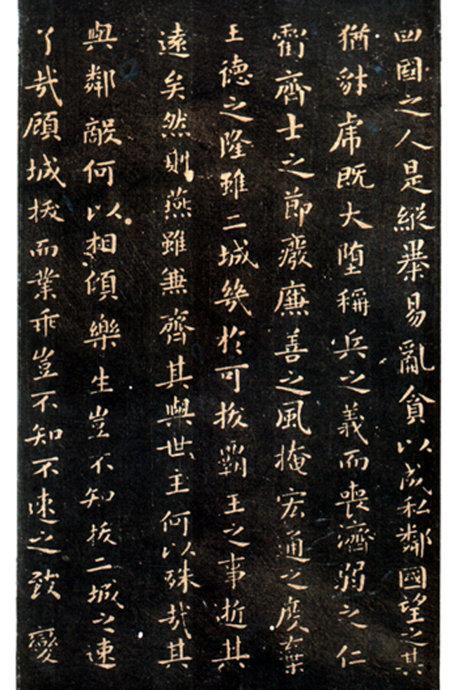 四國之人是縱暴易亂貪以成私鄰國望之其
猶豺虎既大墮稱兵之義而喪濟弱之仁
虧齊士之節廢廉善之風掩宏通之度棄
王德之隆雖二城幾於可拔霸王之事逝其
遠矣然則燕雖兼齊其與世主何以殊哉其
與鄰敵何以相傾樂生豈不知拔二城之速
了哉顧城拔而業乖豈不知不速之致變